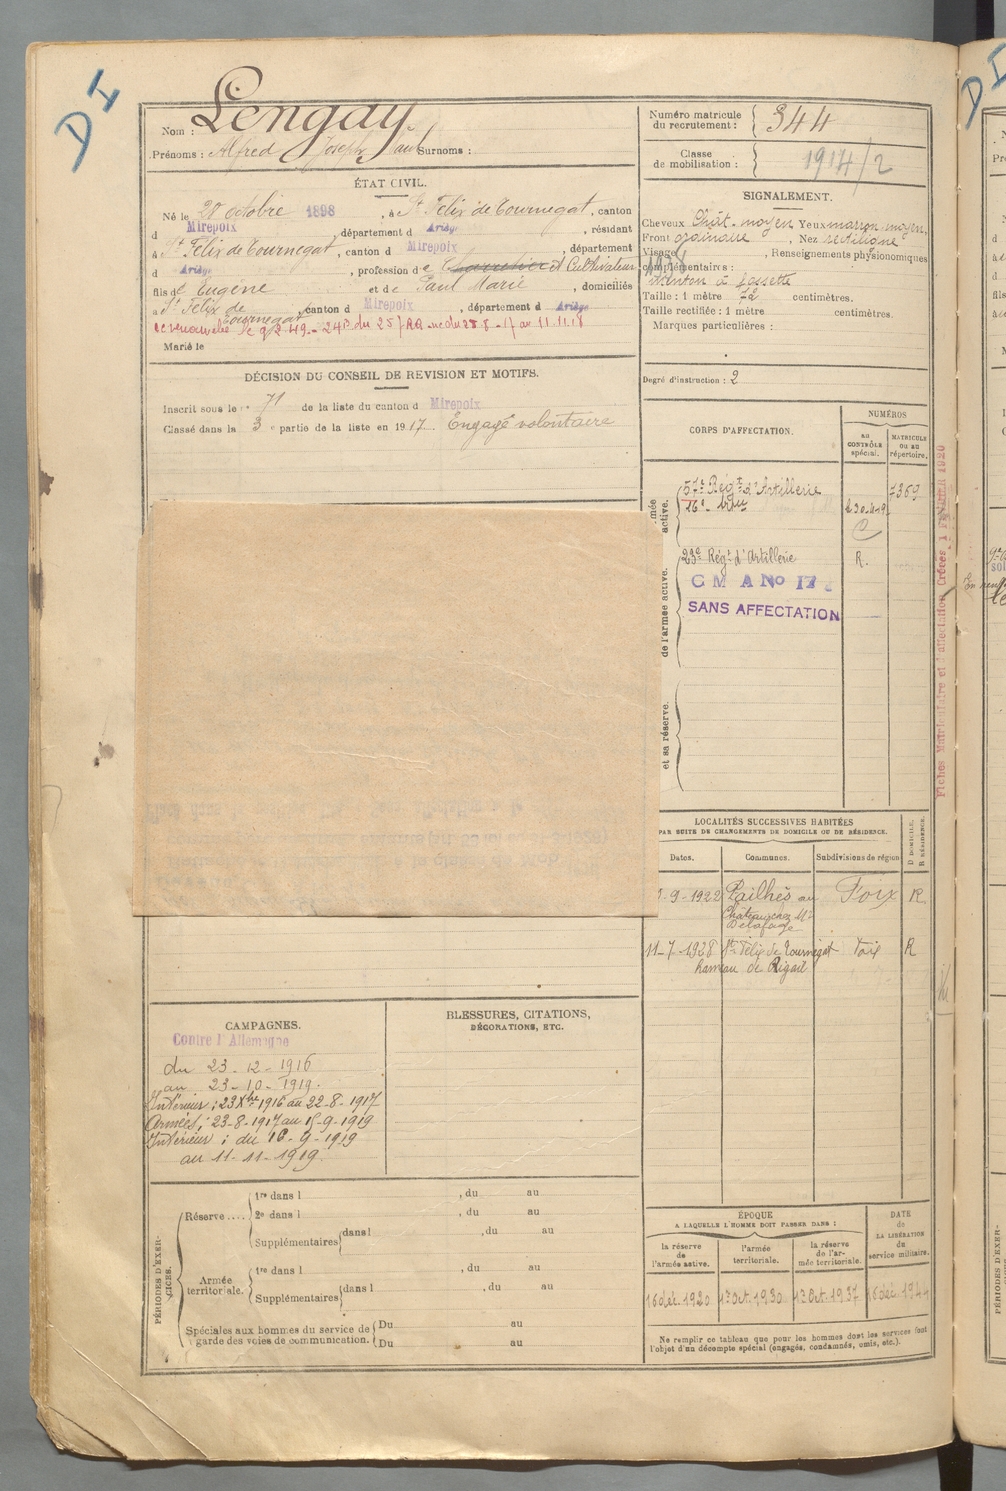 DI
Nom : Lengay
Prénoms : Alfred Joseph Paul Surnoms :
Numéro matricule du recrutement : 344
Classe de mobilisation : 1914/2
ÉTAT CIVIL.
Né le 20 octobre 1898, à St Felix de Tournegat, canton
d Mirepoix, département d Ariège, résidant
à St Felix de Tournegat, canton d Mirepoix, département
d Ariège, profession de Charretier et Cultivateur
fils de Eugène et de Paul Marie, domiciliés
à St Felix de Tournegat, canton d Mirepoix, département d Ariège
Marié le
SIGNALEMENT.
Cheveux Chât. moyen Yeux marron moyen,
Front Nez rectiligne
Visage , Renseignements physionomiques
complémentaires :
menton à fossette
Taille : 1 mètre 72 centimètres.
Taille rectifiée : 1 mètre centimètres.
Marques particulières :
Degré d'instruction : 2
DÉCISION DU CONSEIL DE REVISION ET MOTIFS.
Inscrit sous le n° 71 de la liste du canton d Mirepoix
Classé dans la 3e partie de la liste en 1917. Engagé volontaire
CORPS D'AFFECTATION.
NUMÉROS
au CONTRÔLE spécial.
MATRICULE ou au répertoire.
57e Régt d'Artillerie 7369
16e
23e Régt d'Artillerie R.
C M A No 17
SANS AFFECTATION
active.
de l'armée active.
et sa réserve.
Fiches Matriculaire et d'affectation Créées 1 FEVRIER 1920
LOCALITÉS SUCCESSIVES HABITÉES
PAR SUITE DE CHANGEMENTS DE DOMICILE OU DE RÉSIDENCE.
Dates. Communes. Subdivisions de région
D DOMICILE. R RÉSIDENCE.
9-1922 Pailhès au Foix R.
Château chez Mr
Delafage
11-7-1928 St Félix de Tournegat Foix R
hameau de Rigail
CAMPAGNES.
Contre l'Allemagne
du 23-12-1916
au 23-10-1919.
Intérieur : 23 Xbre 1916 au 22-8-1917
Armées : 23-8-1917 au 15-9-1919
Intérieur : du 16-9-1919
au 11-11-1919.
BLESSURES, CITATIONS,
DÉCORATIONS, ETC.
PÉRIODES D'EXERCICES.
Réserve....
1re dans l , du au
2e dans l , du au
Supplémentaires dans l , du au
Armée territoriale.
1re dans l , du au
Supplémentaires dans l , du au
Spéciales aux hommes du service de garde des voies de communication.
Du au
Du au
ÉPOQUE
A LAQUELLE L'HOMME DOIT PASSER DANS :
DATE de LA LIBÉRATION du service militaire.
la réserve de l'armée active.
l'armée territoriale.
la réserve de l'armée territoriale.
16 déc. 1920 1er Oct. 1930 1er Oct. 1937 16 déc. 1944
Ne remplir ce tableau que pour les hommes dont les services font
l'objet d'un décompte spécial (engagés, condamnés, omis, etc.).